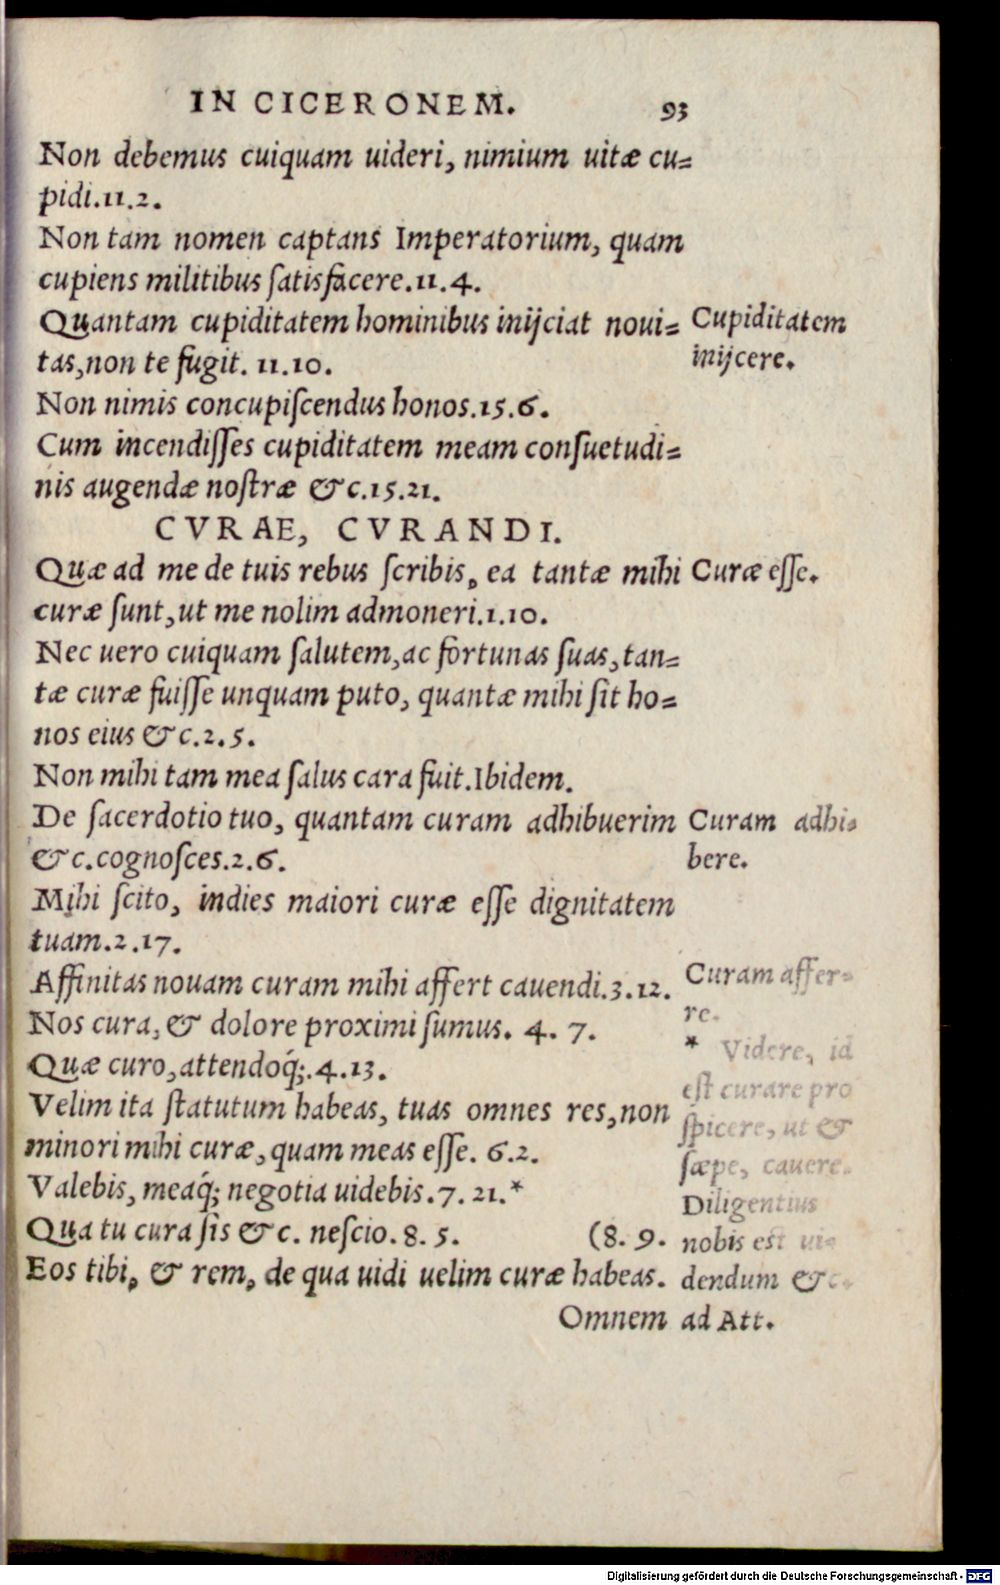 IN CICERONEM. 93
Non debemus cuiquam uideri, nimium uitæ cu=
pidi.11.2.
Non tam nomen captans Imperatorium, quam
cupiens militibus ſatisfacere.11.4.
Quantam cupiditatem hominibus inijciat noui=
tas,non te fugit. 11.10.
Cupiditatem
inijcere.
Non nimis concupiſcendus honos.15.6.
Cum incendiſſes cupiditatem meam conſuetudi=
nis augendæ noſtræ &c.15.21.
CVRAE, CVRANDI.
Quæ ad me de tuis rebus ſcribis, ea tantæ mihi
curæ ſunt,ut me nolim admoneri.1.10.
Curæ eſſe.
Nec uero cuiquam ſalutem,ac fortunas ſuas,tan=
tæ curæ fuiſſe unquam puto, quantæ mihi ſit ho=
nos eius &c.2.5.
Non mihi tam mea ſalus cara fuit.Ibidem.
De ſacerdotio tuo, quantam curam adhibuerim
&c.cognoſces.2.6.
Curam adhi=
bere.
Mihi ſcito, indies maiori curæ eſſe dignitatem
tuam.2.17.
Affinitas nouam curam mihi affert cauendi.3.12.
Curam affer=
re.
Nos cura,& dolore proximi ſumus. 4. 7.
Quæ curo,attendoq́;.4.13.
Velim ita ſtatutum habeas, tuas omnes res,non
minori mihi curæ,quam meas eſſe. 6.2.
Valebis, meaq́; negotia uidebis.7. 21.*
Qua tu cura ſis &c. neſcio.8. 5. (8. 9.
Eos tibi, & rem, de qua uidi uelim curæ habeas.
Omnem
* Videre, id
eſt curare pro
ſpicere, ut &
ſæpe, cauere.
Diligentius
nobis est ui=
dendum &c.
ad Att.
Digitalisierung gefördert durch die Deutsche Forschungsgemeinschaft - DFG